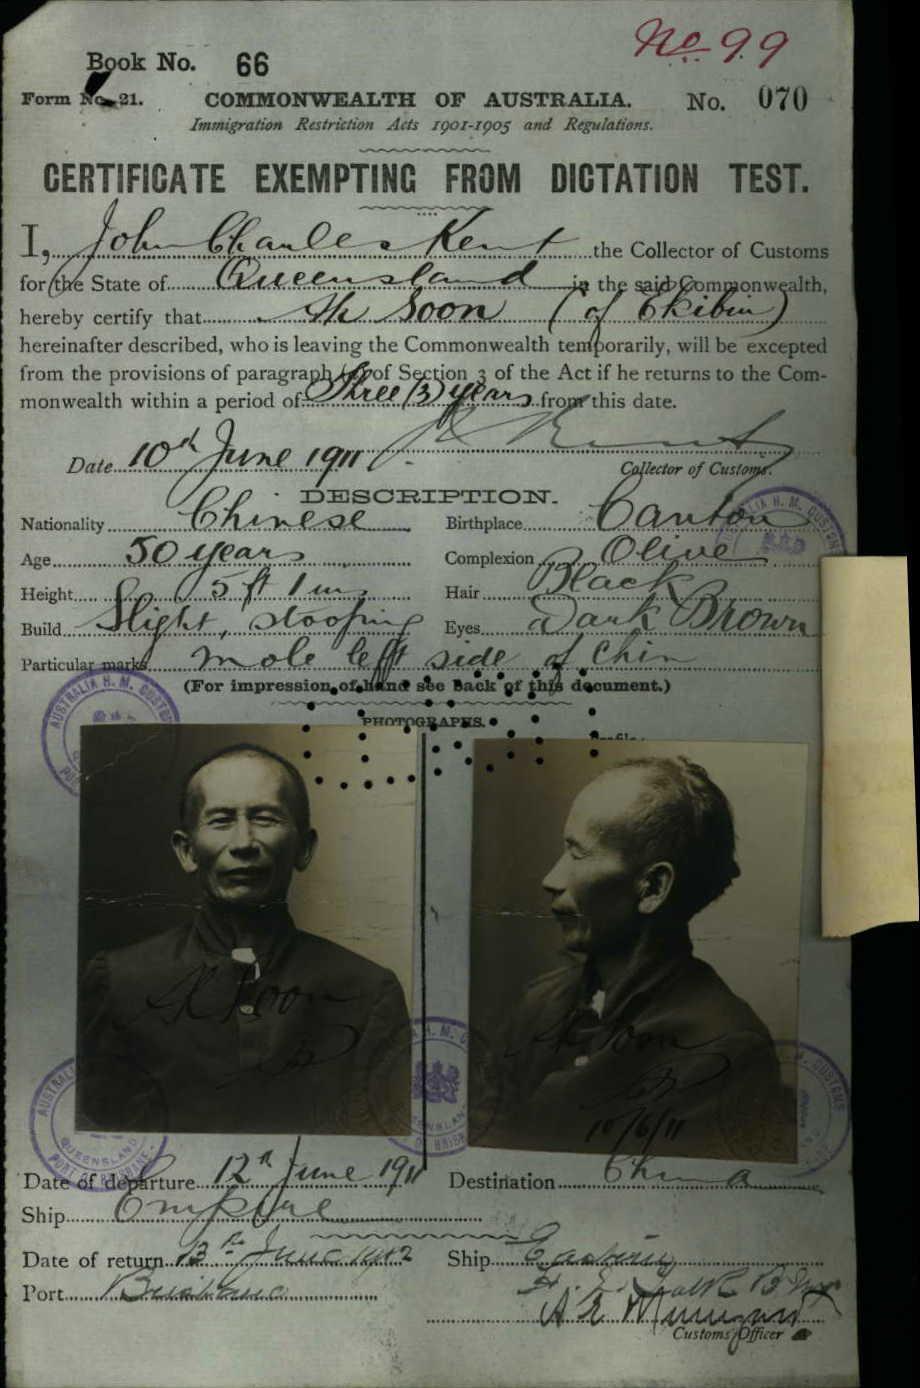 No. 99
Book No. 66
Form No. 21. COMMONWEALTH OF AUSTRALIA. No. 070
Immigration Restriction Acts 1901-1905 and Regulations.
CERTIFICATE EXEMPTING FROM DICTATION TEST.
I, John Charles Kent the Collector of Customs
for the State of Queensland in the said Commonwealth,
hereby certify that Ah Soon (of Ekibin)
hereinafter described, who is leaving the Commonwealth temporarily, will be excepted
from the provisions of paragraph of Section 3 of the Act if he returns to the Com-
monwealth within a period of Three (3) years from this date.
Date 10th June 1911
Collector of Customs.
DESCRIPTION.
Nationality Chinese Birthplace Canton
Age 50 years Complexion Olive
Height 5 ft 1 in. Hair Black
Build Slight, stooping Eyes Dark Brown
Particular marks mole left side of Chin
(For impression of hand see back of this document.)
PHOTOGRAPHS.
Profile:
Ah Soon
Ah Soon
10/6/11
AUSTRALIA H. M. CUSTOMS
QUEENSLAND
Date of departure 12th June 1911 Destination China
Ship Empire
Date of return 13th June 1912 Ship Eastern
Port Brisbane
Customs Officer